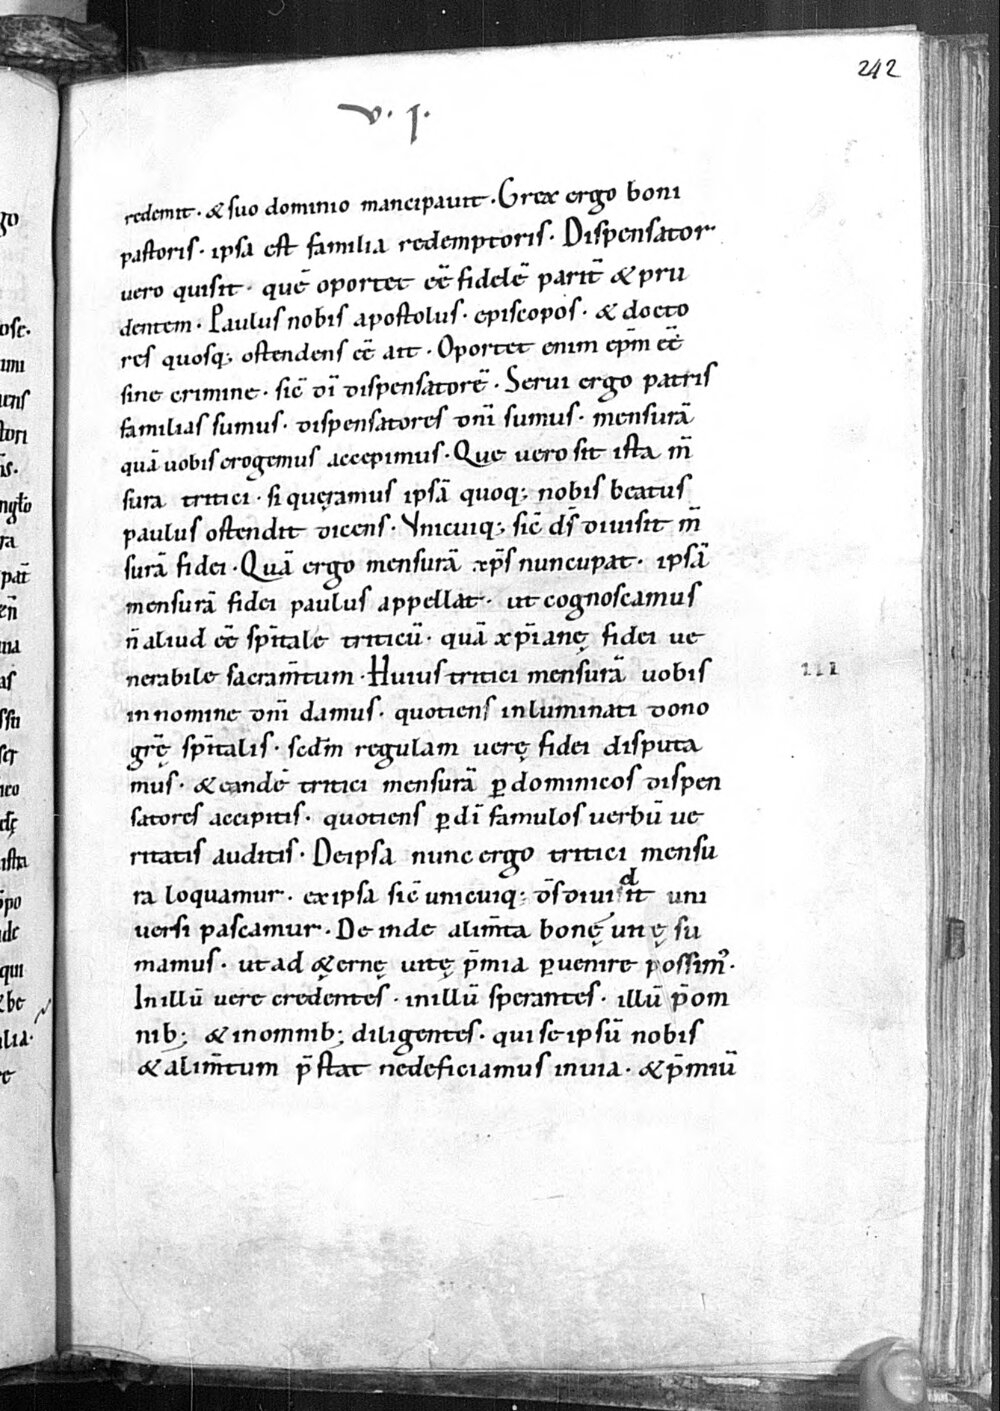 242
v. I.
redemit. & suo dominio mancipauit. Grex ergo boni
pastoris. ipsa est familia redemptoris. Dispensator
uero quisit. quē oportet eē fidelē parit̄ & pru
dentem. Paulus nobis apostolus. episcopos. & docto
res quosq; ostendens eē ait. Oportet enim ep̄m eē
sine crimine. sic̄ dī dispensatorē. Serui ergo patris
familias sumus. dispensatores dn̄i sumus. mensurā
quā uobis erogemus accepimus. Que uero sit ista m̄
sura tritici. si quęramus ipsā quoq; nobis beatus
paulus ostendit dicens. Vnicuiq; sic̄ ds̄ diuisit m̄
surā fidei. Quā ergo mensurā xp̄s nuncupat. ipsā
mensurā fidei paulus appellat. ut cognoscamus
n̄ aliud eē sp̄itale triticū. quā xp̄ianę fidei ue
nerabile sacram̄tum. Huius tritici mensurā uobis
in nomine dn̄i damus. quotiens inluminati dono
gr̄ę sp̄italis. secd̄m regulam uerę fidei disputa
mus. & eandē tritici mensurā ꝑ dominicos dispen
satores accipitis. quotiens ꝑ dī famulos uerbū ue
ritatis auditis. De ipsa nunc ergo tritici mensu
ra loquamur. ex ipsa sic̄ unicuiq; d̄s diuidit uni
uersi pascamur. De inde alim̄ta bonę uitę su
mamus. ut ad &ernę uitę p̄mia ꝑuenire possim᾽.
In illū uere credentes. in illū sperantes. illū p̄ om
nib; & in omnib; diligentes. qui se ipsū nobis
& alim̄tum p̄stat ne deficiamus in uia. & p̄miū
III